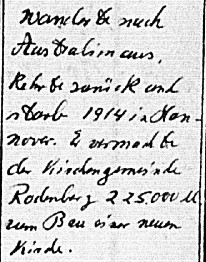 wanderte nach
Australien aus,
Kehrte zurück und
starb 1914 in Han-
nover. Er vermachte
der Kirchengemeinde
Rodenberg 225.000 M
zum Bau einer neuen
Kirche.